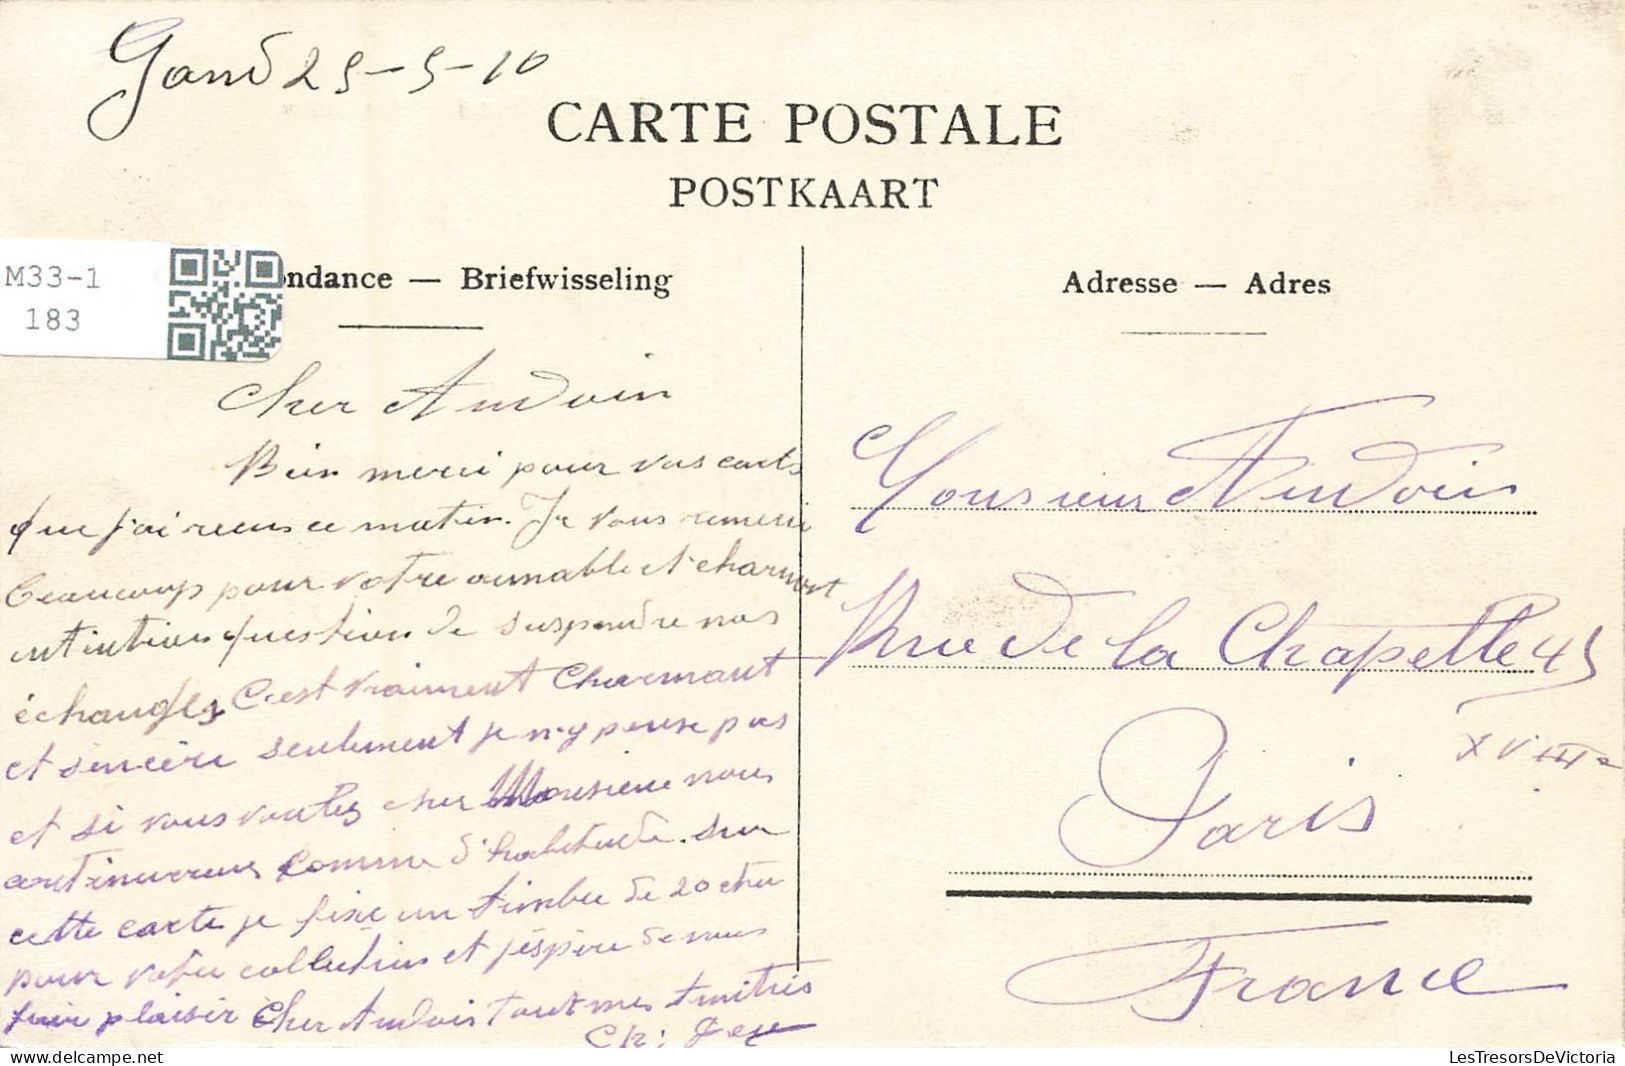 Gand 25-5-10
CARTE POSTALE
POSTKAART
M33-1
183
ondance — Briefwisseling
Adresse — Adres
Cher Audoin
Bien merci pour vos carts
que j'ai recus ce matin. Je vous remerci
beaucoup pour votre aimable et charmant
intention question de suspendre nos
échanges C'est vraiment charmant
et sincère seulement je n'y pense pas
et si vous voulez cher Monsieur nous
continuerons comme d'habitude. sur
cette carte je fixe un timbre de 20 ctm
pour votre collection et j'éspère de vous
fair plaisir Cher Audoin tout mes Amitiés
Ch:
Monsieur Audoin
Rue de la Chapelle 45
XVIII
Paris
France
LesTresorsDeVictoria